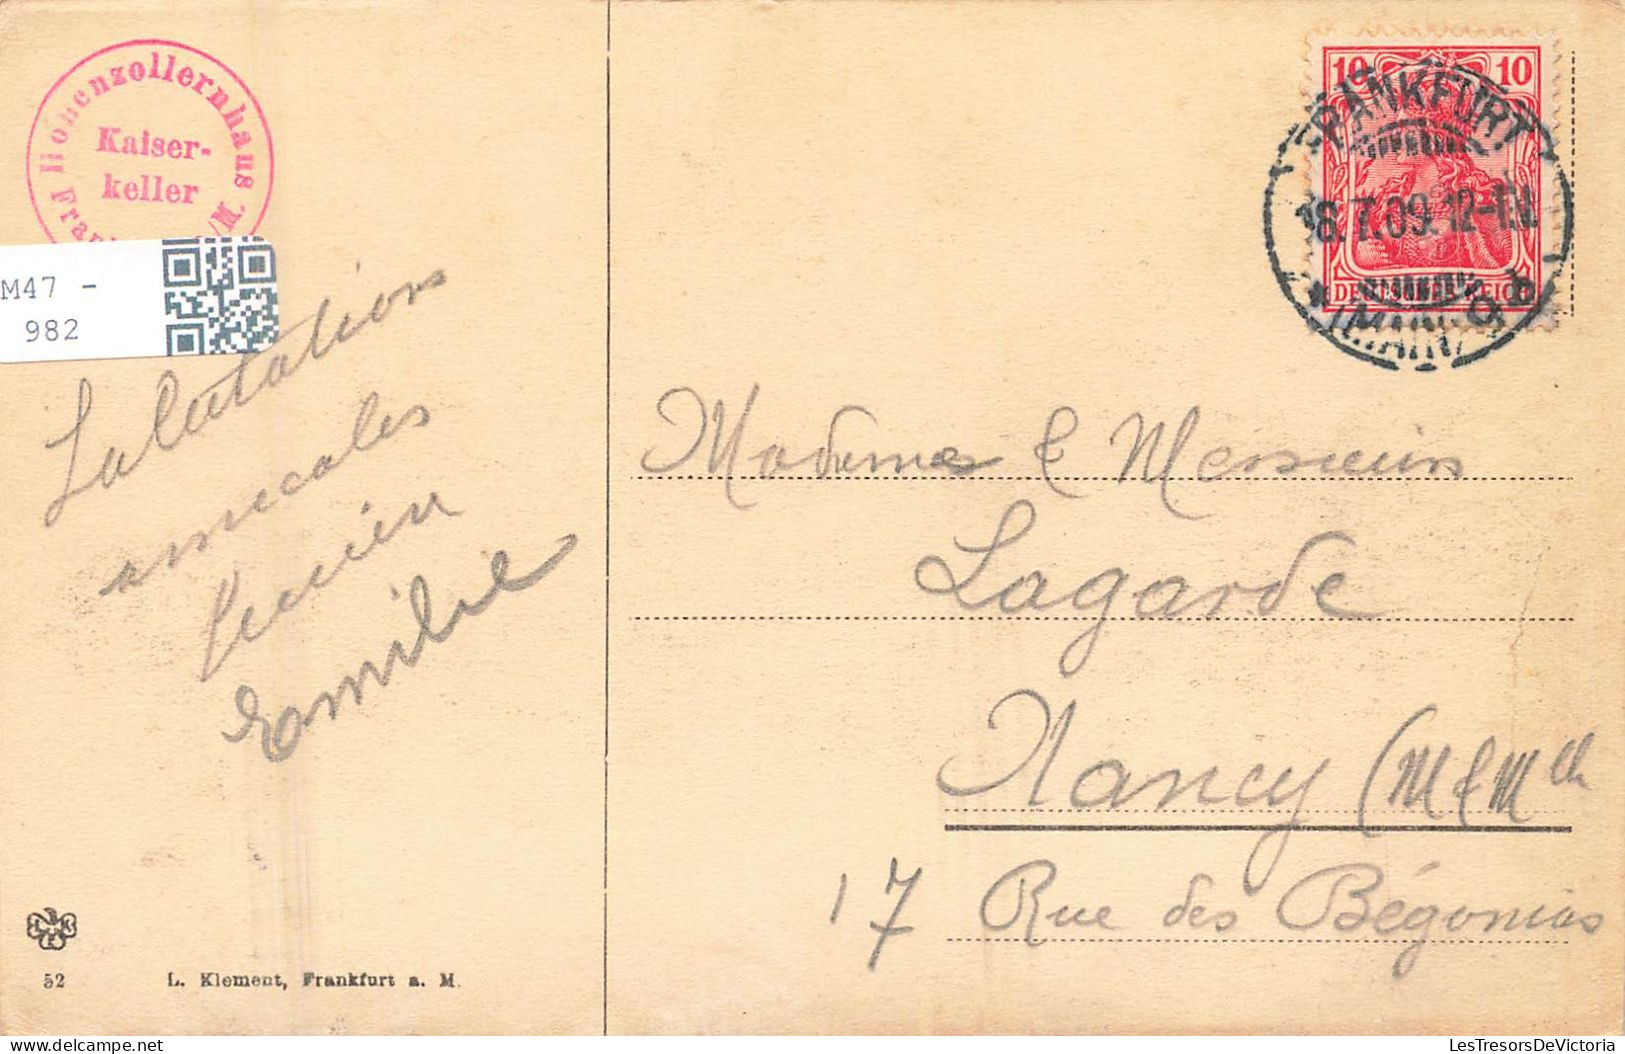 Hohenzollernhaus
Kaiser-
keller
M47 -
982
10 10
FRANKFURT
18.7.09. 12-1N.
DEUTSCHES REICH
(MAIN) 9 b
Salutations
amicales
Lucien
Emilie
Madame & Messieurs
Lagarde
Nancy (M & Mlle
17 Rue des Bégonias
52
L. Klement, Frankfurt a. M.
delcampe.net
LesTresorsDeVictoria